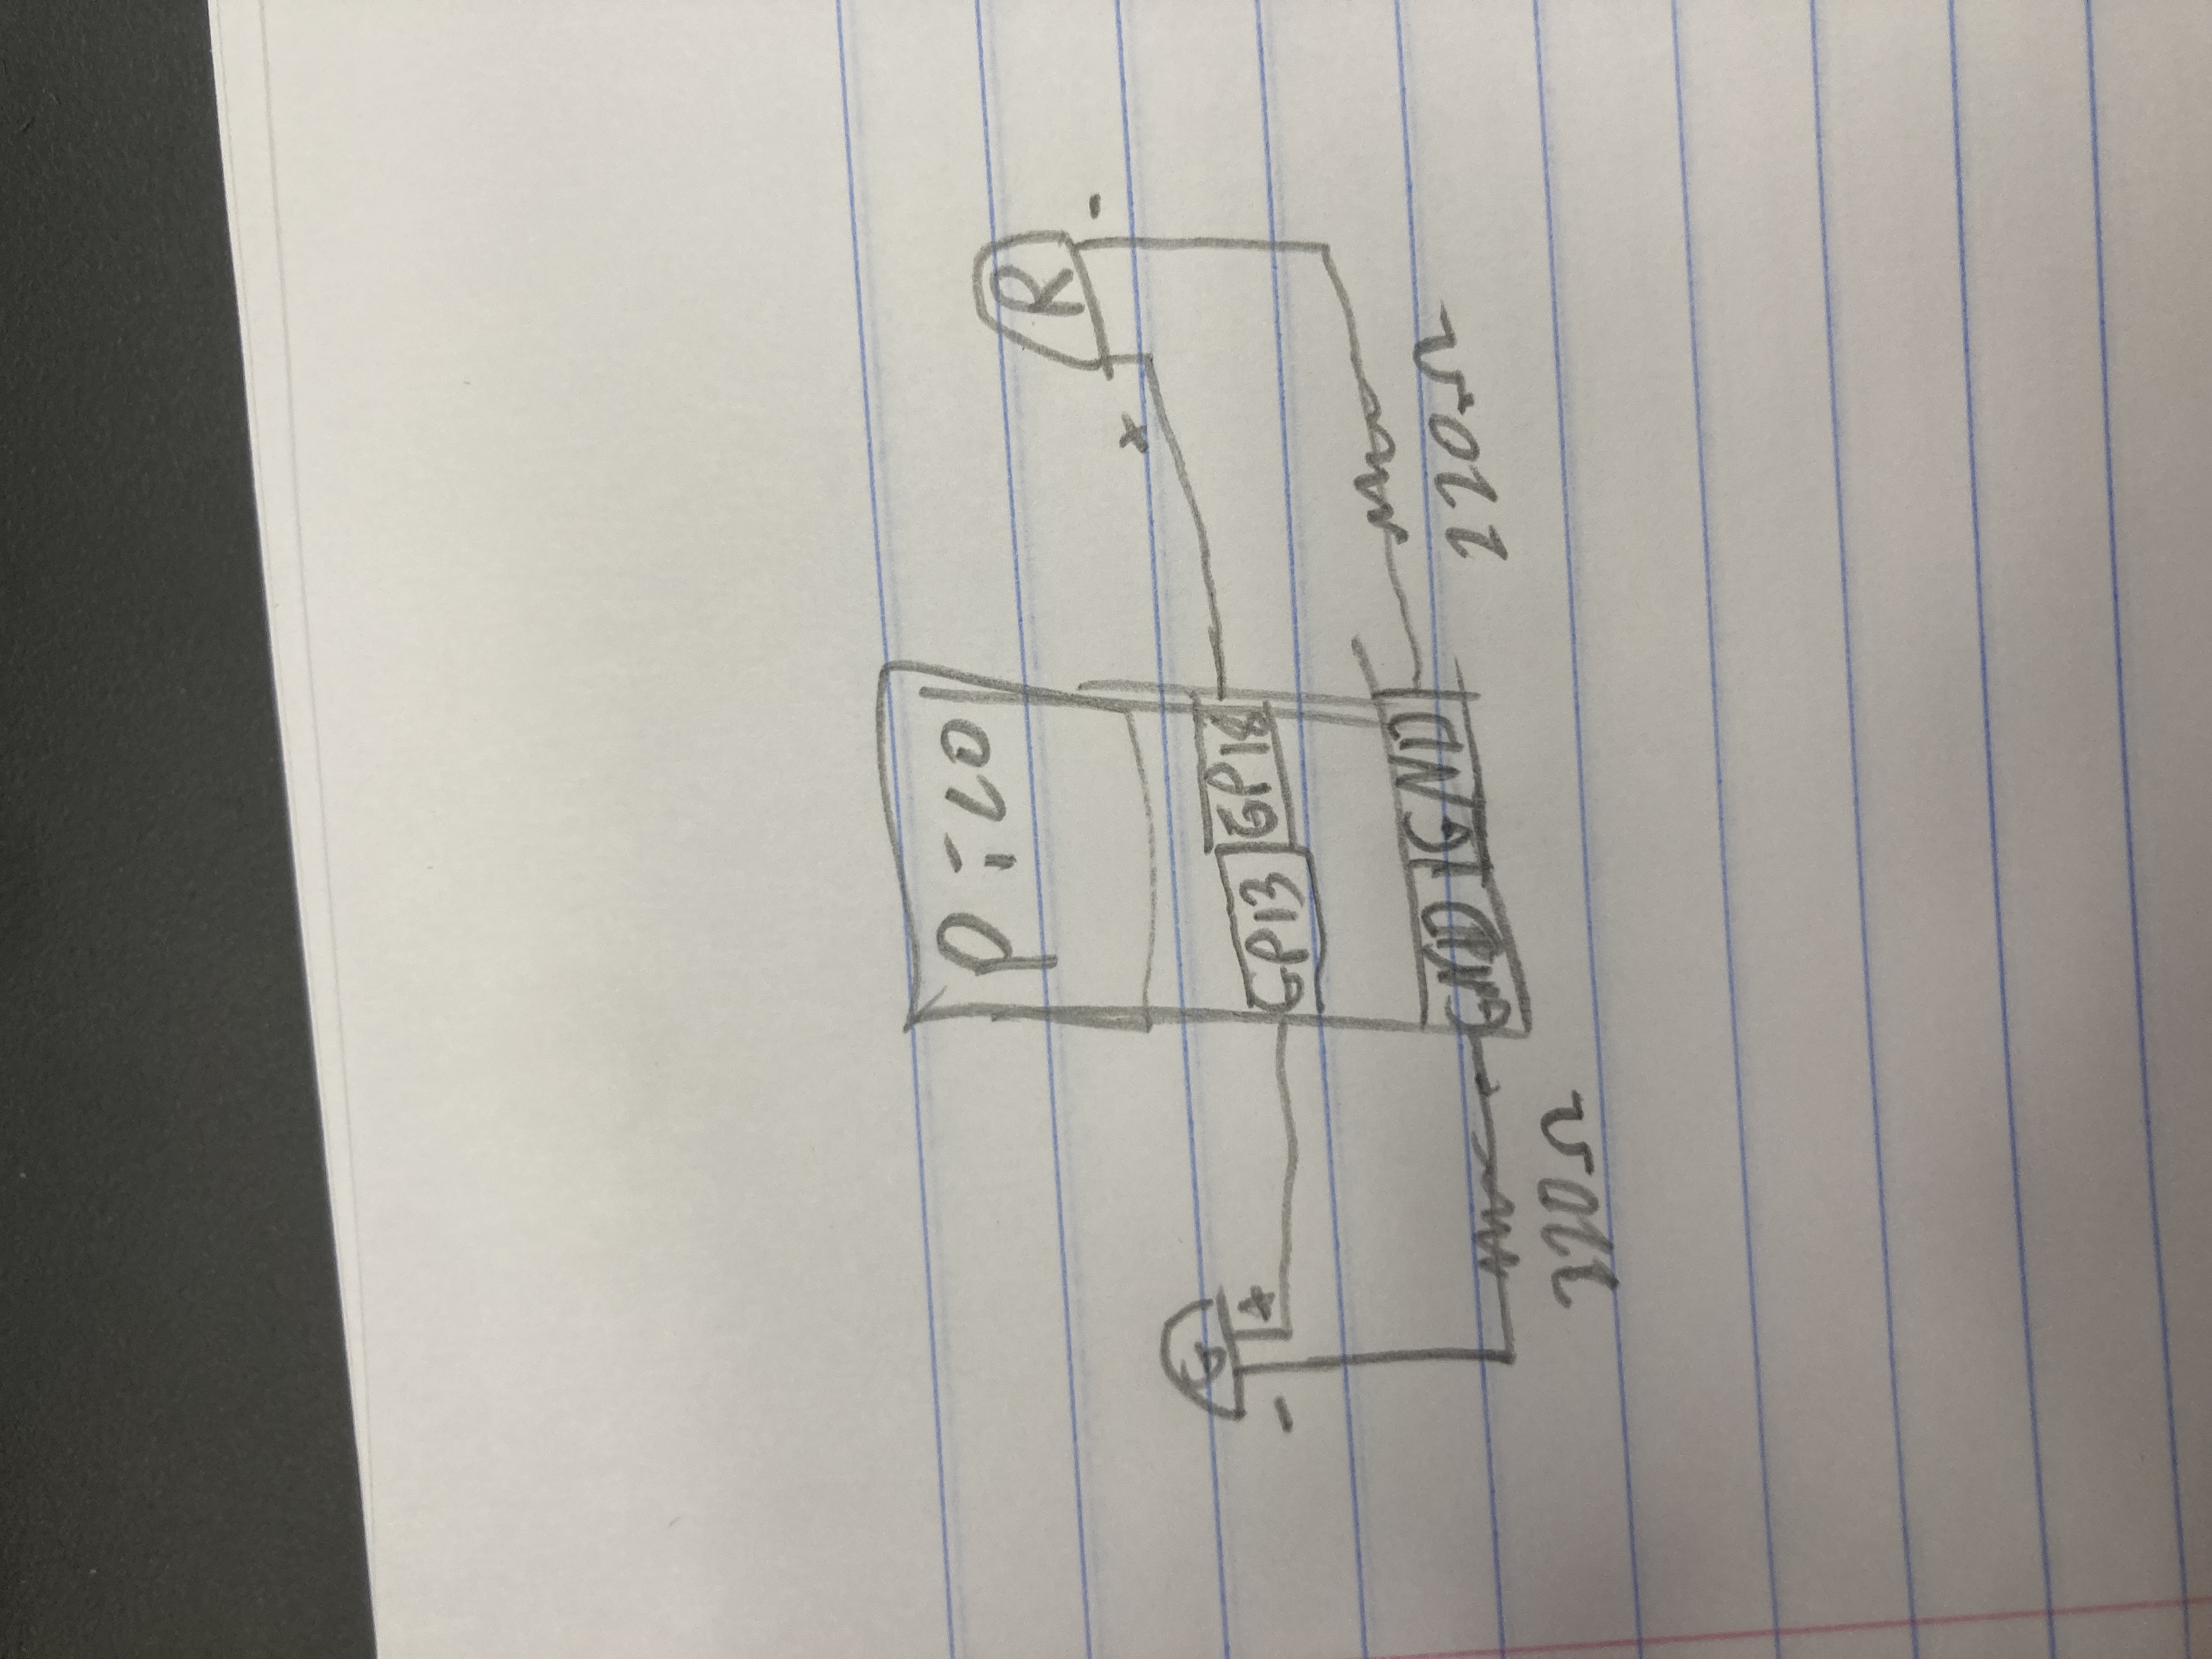 Pico
R
-
+
G
- +
GP13 GP18
GND GND
220Ω
220Ω